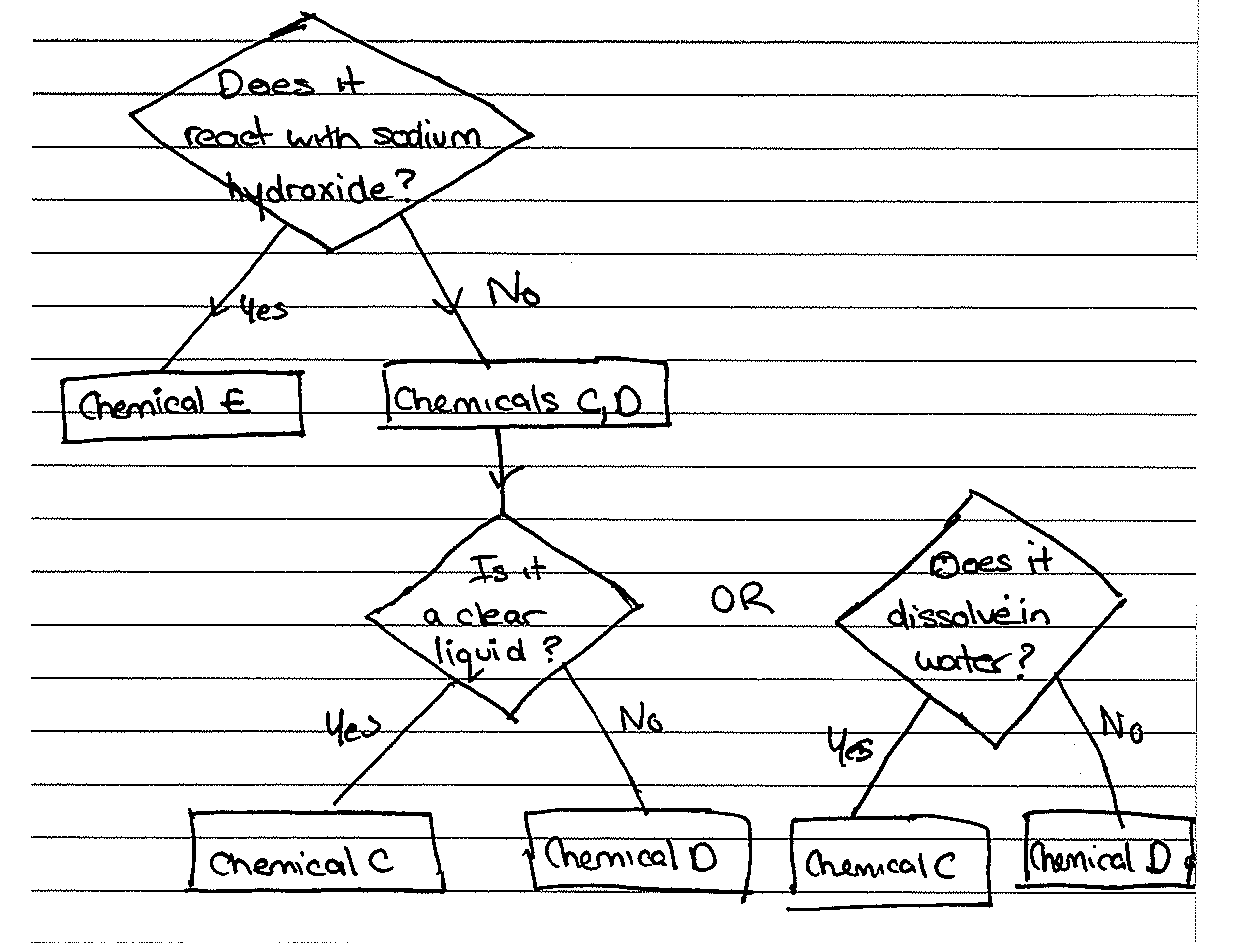 Does it
react with sodium
hydroxide?
Yes
No
Chemical E
Chemicals C, D
Is it
a clear
liquid?
OR
Does it
dissolve in
water?
Yes
No
Yes
No
Chemical C
Chemical D
Chemical C
Chemical D